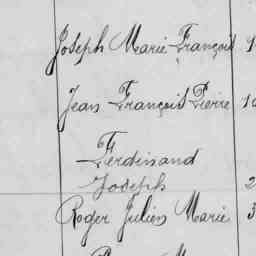 Joseph Marie François
Jean François Pierre
Ferdinand
Joseph
2
Roger Julien Marie 3